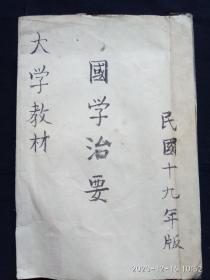 民國十九年版
國学治要
大学教材
2020-12-15 10:52